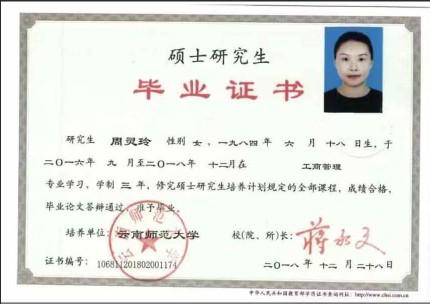 硕士研究生
毕业证书
研究生 周灵玲 性别 女，一九八四年 六 月 十八 日生，于
二〇一六年 九 月至二〇一八年 十二月在 工商管理
专业学习，学制 三 年，修完硕士研究生培养计划规定的全部课程，成绩合格，
毕业论文答辩通过，准予毕业。
培养单位：云南师范大学 校(院、所)长：
证书编号：106811201802001174 二〇一八年 十二 月 二十八日
中华人民共和国教育部学历证书查询网址：http://www.chsi.com.cn